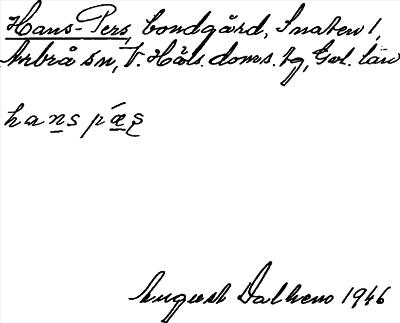 Hans-Pers, bondgård, Snaten 1,
Arbrå sn, V. Häls. doms. tg, Gvl. län
hans pæș
August Dalheno 1946